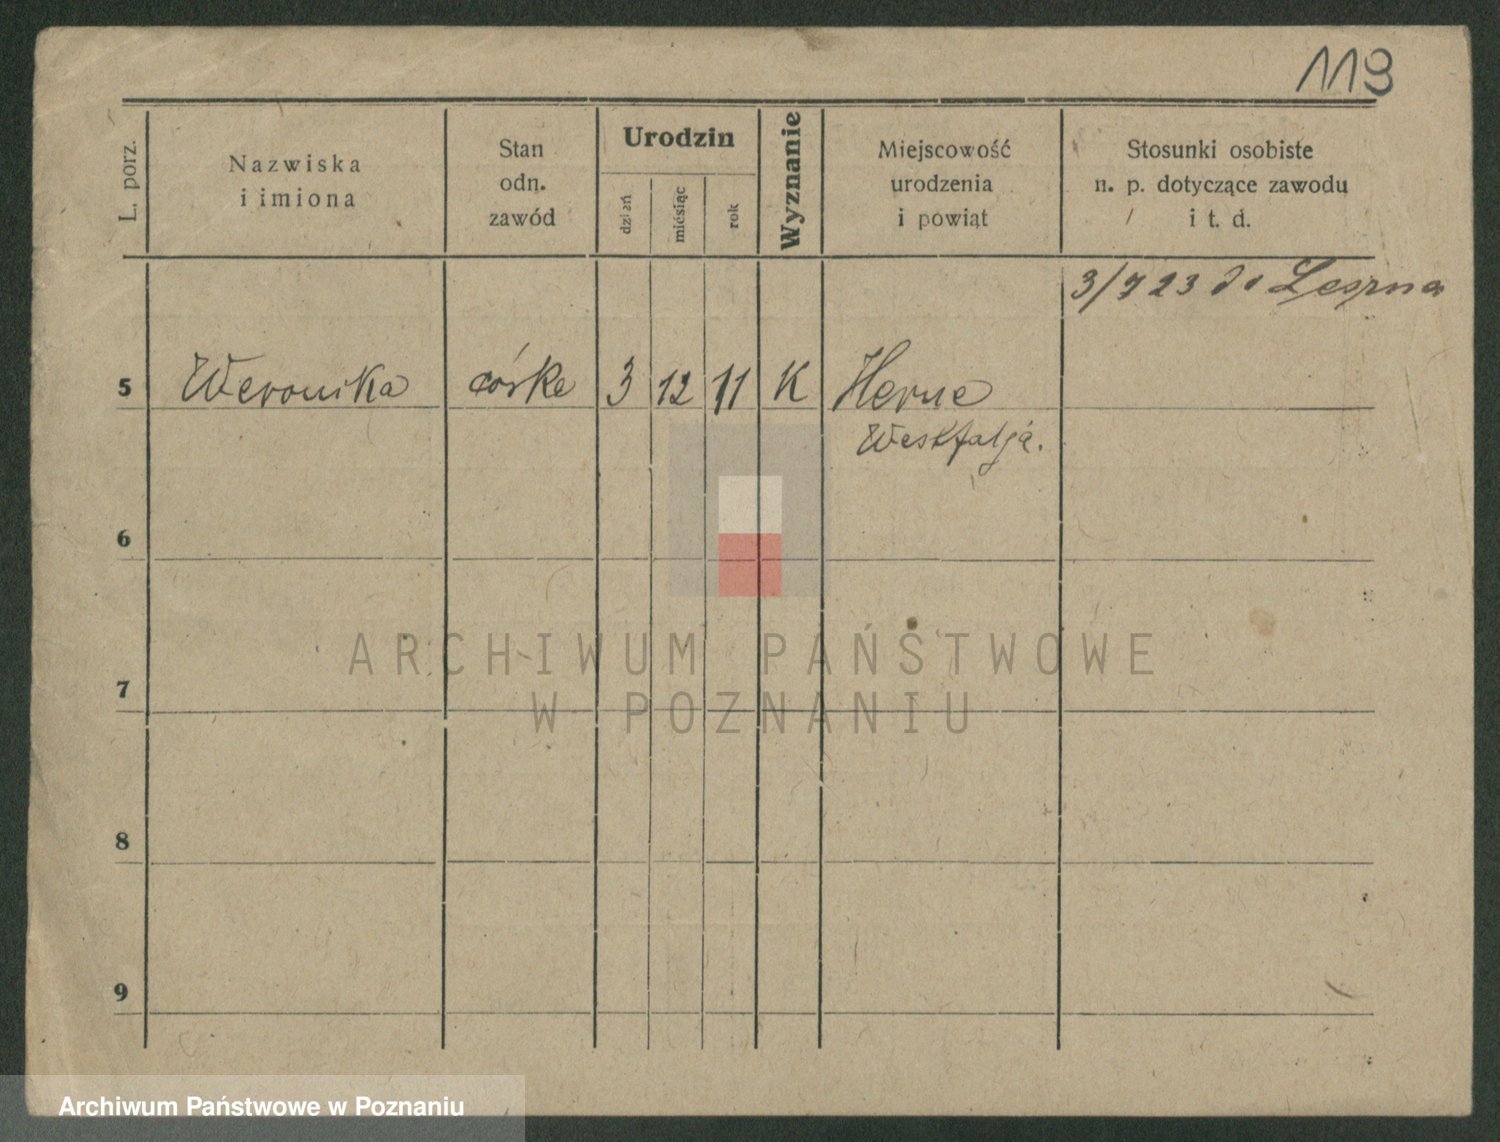 119
L. porz.
Nazwiska
i imiona
Stan
odn.
zawód
Urodzin
dzień
miesiąc
rok
Wyznanie
Miejscowość
urodzenia
i powiąt
Stosunki osobiste
n. p. dotyczące zawodu
i t. d.
3/7 23 do Leszna
5 Weronika córka 3 12 11 K Herne
Westfalja.
6
7
8
9
ARCHIWUM PAŃSTWOWE
W POZNANIU
Archiwum Państwowe w Poznaniu